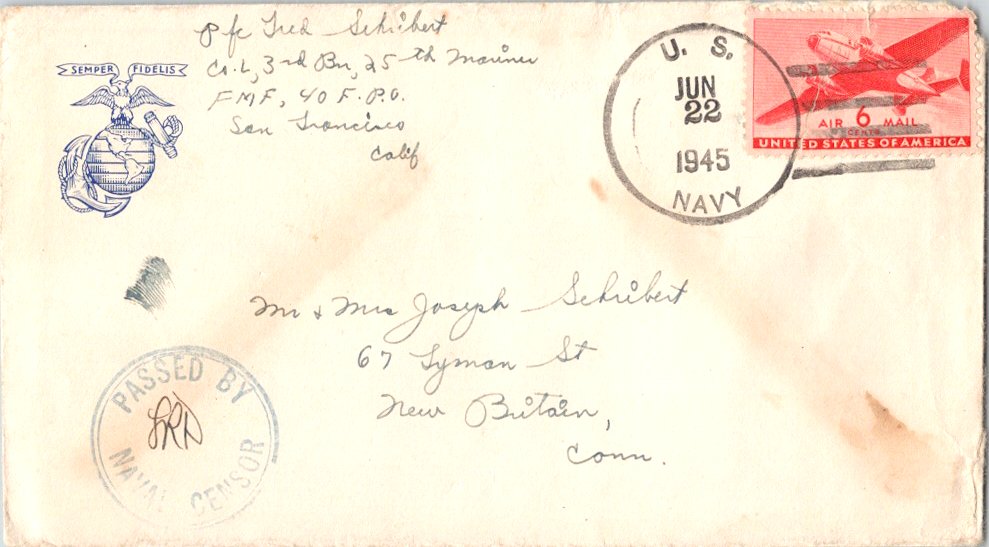 Pfc Fred Schibert
Co. L, 3rd Bn, 25th Marines
FMF, c/o F.P.O.
San Francisco
Calif
SEMPER FIDELIS
U. S.
JUN
22
1945
NAVY
AIR 6 MAIL
CENTS
UNITED STATES OF AMERICA
Mr & Mrs Joseph Schibert
67 Lyman St
New Britain,
Conn.
PASSED BY
LRD
NAVAL CENSOR